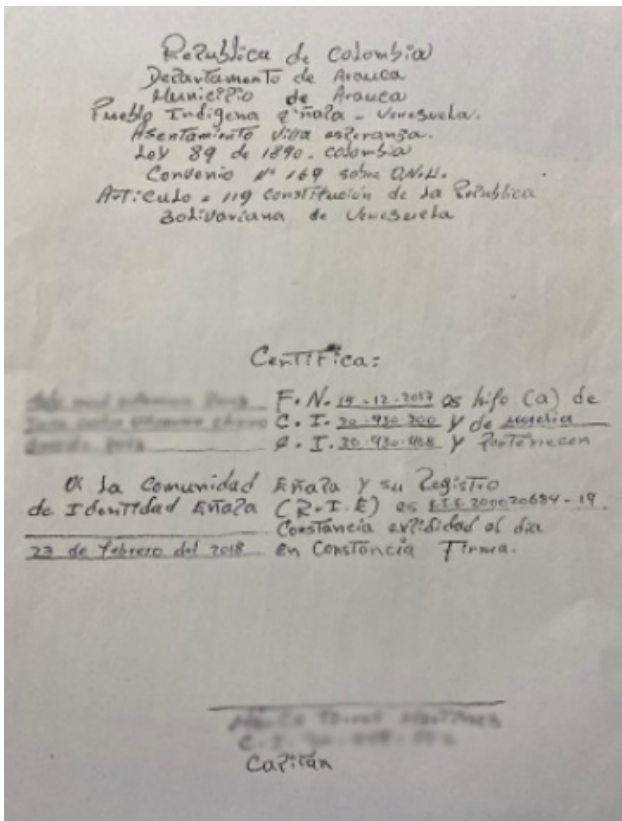 Republica de Colombia
Departamento de Arauca
Municipio de Arauca
Pueblo Indigena eñapa - Venesuela.
Asentamiento Villa esperanza.
Ley 89 de 1890. colombia
Convenio Nº 169 sobre
Articulo = 119 Constitución de la Republica
Bolivariana de Venesuela
Certifica:
F. N. 15-12-2017 es hijo (a) de
C. I. 20.930.300 y de
I. 20.930.468 y Pertenecen
a la Comunidad Eñapa y su Registro
de Identidad Eñapa (R.I.E) es 200020684-19.
Constancia expididad el dia
23 de febrero del 2018 en Constancia Firma.
Capitán